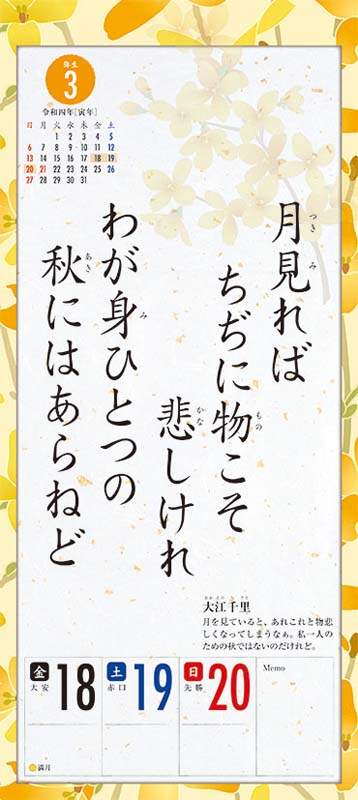 弥生
3
令和四年[寅年]
日 月 火 水 木 金 土
1 2 3 4 5
6 7 8 9 10 11 12
13 14 15 16 17 18 19
20 21 22 23 24 25 26
27 28 29 30 31
月見れば
つき み
ちぢに物こそ
もの
悲しけれ
かな
わが身ひとつの
み
秋にはあらねど
あき
大江千里
月を見ていると、あれこれと物悲
しくなってしまうなぁ。私一人の
ための秋ではないのだけれど。
金 大安 18
土 赤口 19
日 先勝 20
Memo
満月